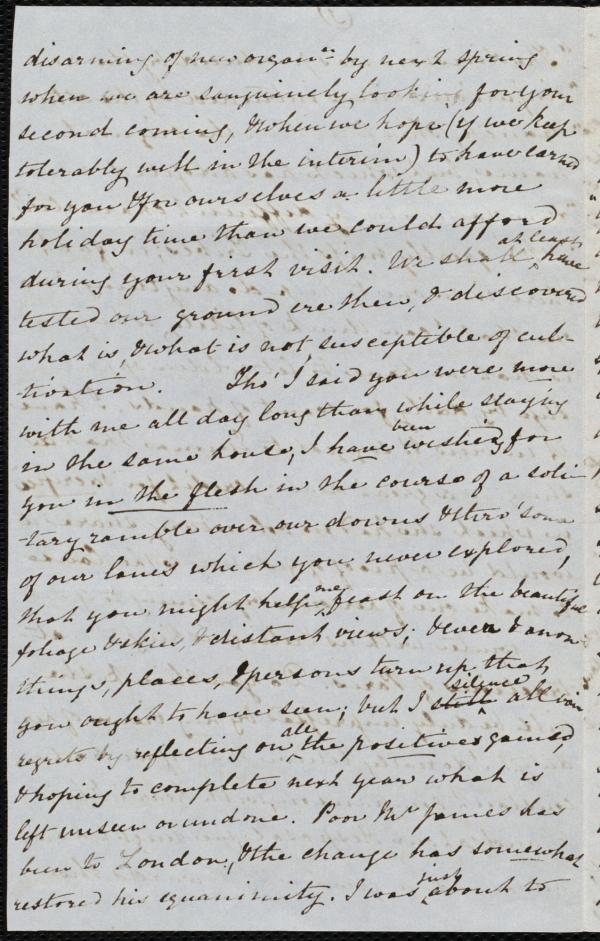 disarming of new organ:ns by next spring
when we are sanguinely looking for your
second coming, & when we hope (if we keep
tolerably well in the interim) to have earned
for you & for ourselves a little more
holiday time than we could afford
during your first visit. We shall at least have
tested our ground ere then, & discovered
what is, & what is not, susceptible of cul-
tivation. Tho' I said you were more
with me all day long than while staying
in the same house, I have been wishing for
you in the flesh in the course of a soli-
-tary ramble over our downs & thro' some
of our lanes which you never explored,
that you might help me feast on the beautiful
foliage & skies, & distant views; & ever & anon
things, places, & persons turn up that
you ought to have seen; but I still silence all vain
regrets by reflecting on all the positives gained,
& hoping to complete next year what is
left unseen or undone. Poor Mr James has
been to London, & the change has somewhat
restored his equanimity. I was just about to